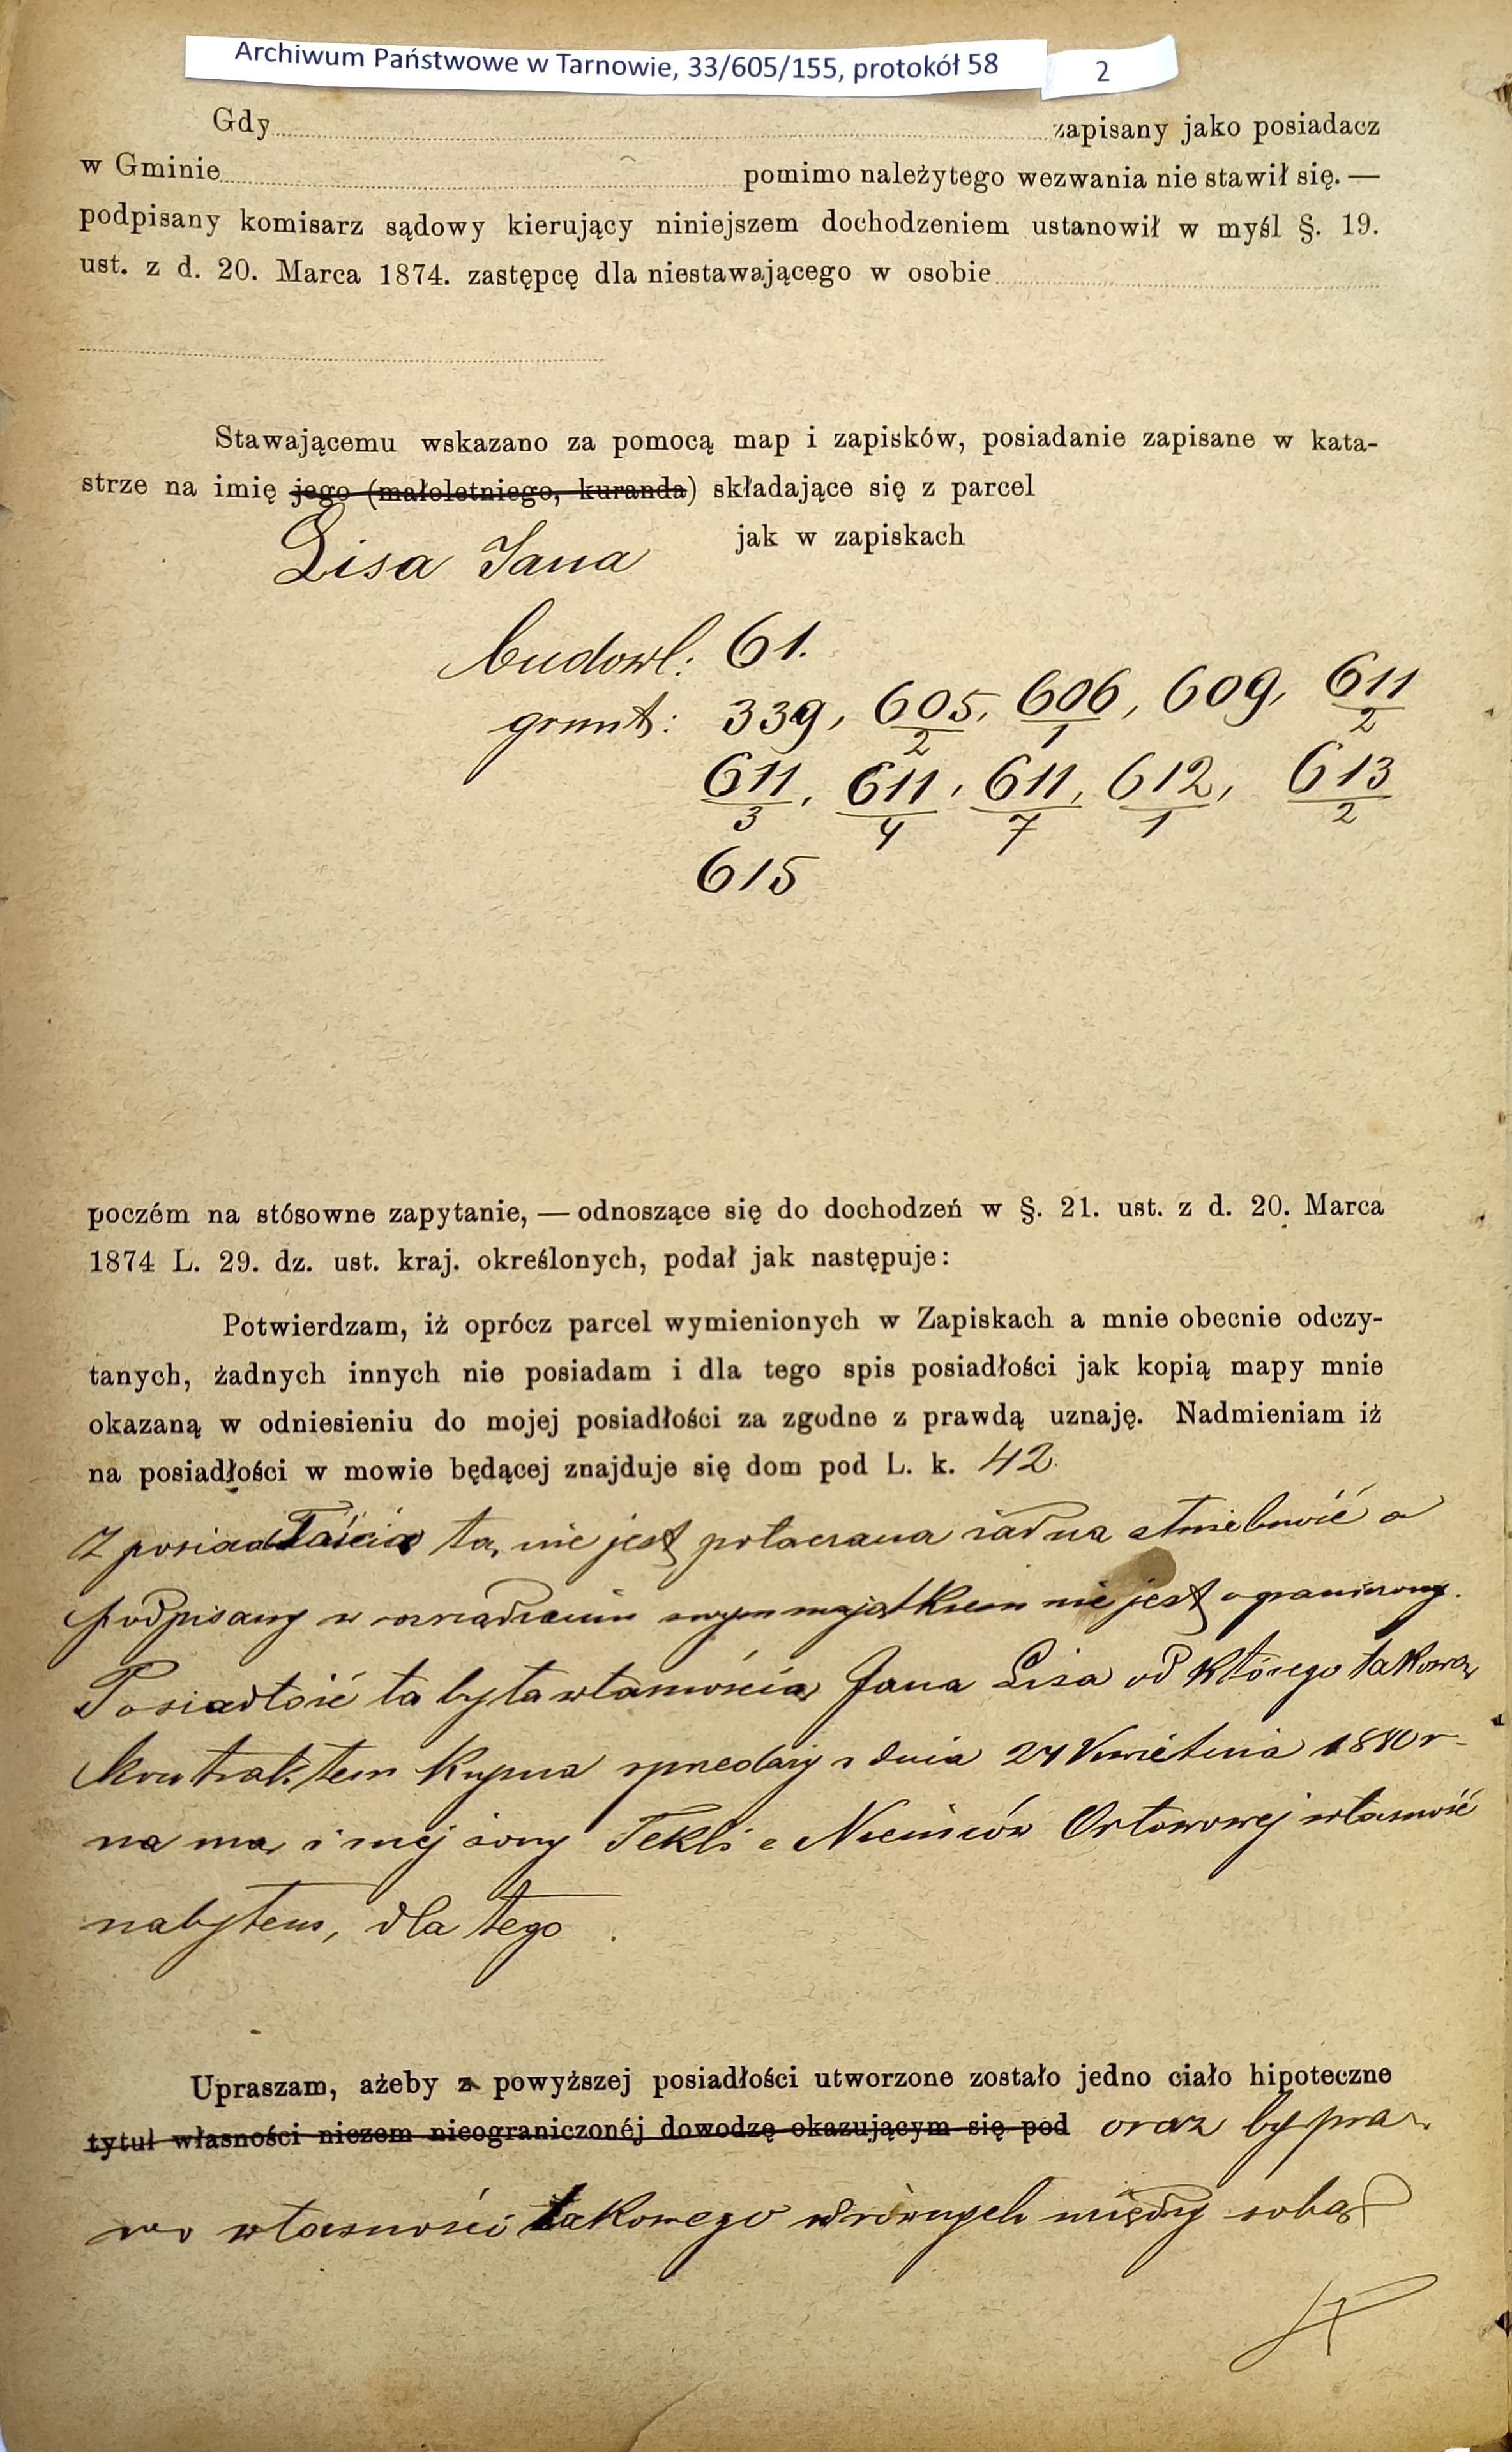 Archiwum Państwowe w Tarnowie, 33/605/155, protokół 58
2
Gdy zapisany jako posiadacz
w Gminie pomimo należytego wezwania nie stawił się. —
podpisany komisarz sądowy kierujący niniejszem dochodzeniem ustanowił w myśl §. 19.
ust. z d. 20. Marca 1874. zastępcę dla niestawającego w osobie
Stawającemu wskazano za pomocą map i zapisków, posiadanie zapisane w kata-
strze na imię jego (małoletniego, kuranda) składające się z parcel
jak w zapiskach
Lisa Jana
budowl: 61.
grunt: 339, 605/2, 606/1, 609, 611/2
611/3, 611/4, 611/7, 612/1, 613/2
615
poczém na stósowne zapytanie, — odnoszące się do dochodzeń w §. 21. ust. z d. 20. Marca
1874 L. 29. dz. ust. kraj. określonych, podał jak następuje:
Potwierdzam, iż oprócz parcel wymienionych w Zapiskach a mnie obecnie odczy-
tanych, żadnych innych nie posiadam i dla tego spis posiadłości jak kopią mapy mnie
okazaną w odniesieniu do mojej posiadłości za zgodne z prawdą uznaję. Nadmieniam iż
na posiadłości w mowie będącej znajduje się dom pod L. k. 42.
Z posiadłością tą nie jest połączona żadna służebność a
podpisany w zarządzaniu swym majątkiem nie jest ograniczony.
Posiadłość ta była własnością Jana Lisa od którego takową
kontraktem kupna sprzedaży z dnia 24 Kwietnia 1880 r
na mą i mej żony Tekli z Niemców Orłowowej własność
nabyłem, dla tego
Upraszam, ażeby z powyższej posiadłości utworzone zostało jedno ciało hipoteczne
tytuł własności niczem nieograniczonéj dowodzę okazującym się pod oraz by pra-
wo własności takowego w równych między sobą